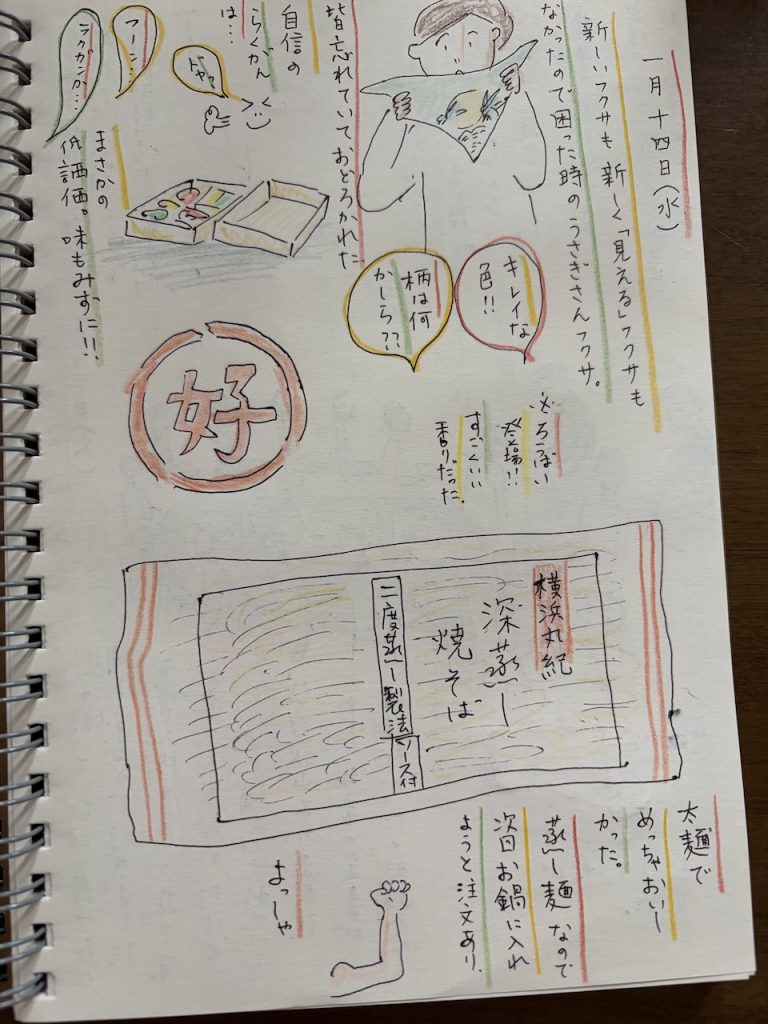 一月十四日(水)
新しいフクサも新しく「見える」フクサも
なかったので困った時のうさぎさんフクサ。
キレイな
色!!
柄は何
かしら??
皆忘れていておどろかれた
自信の
らくがん
は…
ドヤっ
フーン…
ラクガンか…
まさかの
低評価。味もみずに!!
好
登場!!
すごくいい
香りだった。
横浜丸紀
深蒸し
焼そば
二度蒸し製法
ソース付
太麺で
めっちゃおいし
かった。
蒸し麺なので
次回お鍋に入れ
ようと注文あり。
よっしゃ